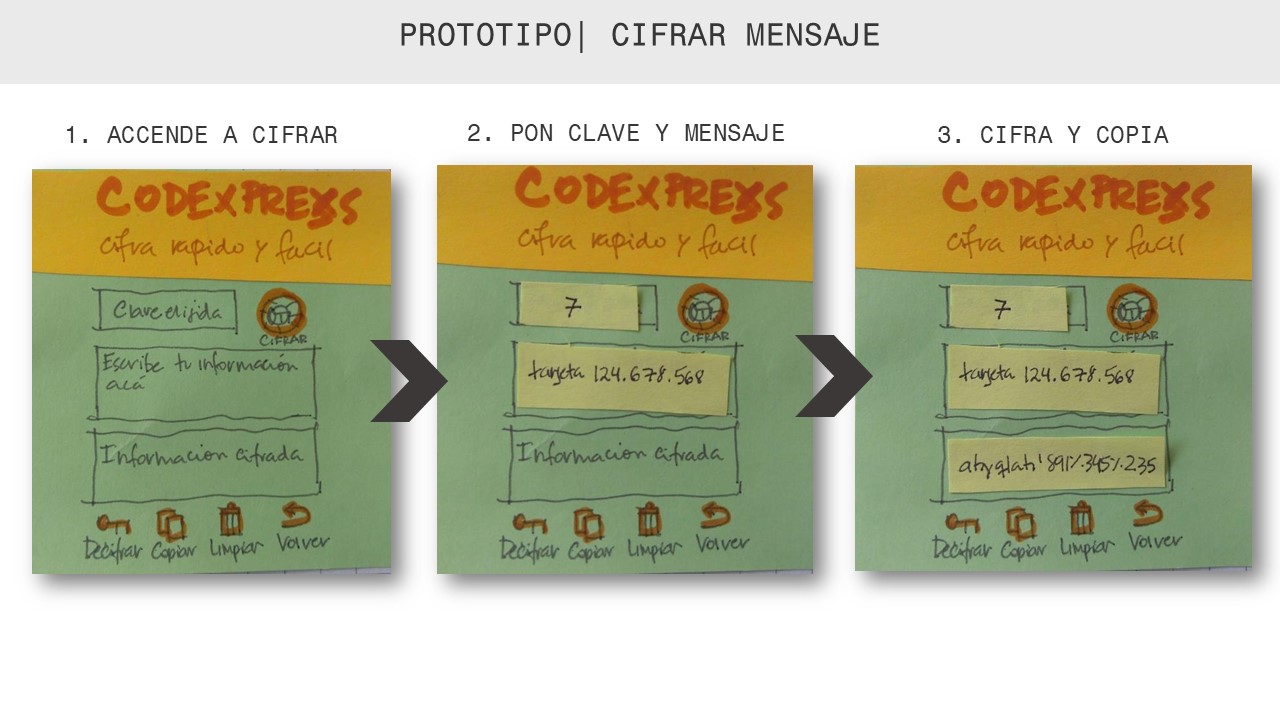 PROTOTIPO| CIFRAR MENSAJE
1. ACCENDE A CIFRAR
CODEXPRESS
cifra rapido y facil
Clave elijida
CIFRAR
Escribe tu información
acá
Informacion cifrada
Decifrar Copiar Limpiar Volver
2. PON CLAVE Y MENSAJE
CODEXPRESS
cifra rapido y facil
7
CIFRAR
tarjeta 124.678.568
Informacion cifrada
Decifrar Copiar Limpiar Volver
3. CIFRA Y COPIA
CODEXPRESS
cifra rapido y facil
7
CIFRAR
tarjeta 124.678.568
891%.345%.235
Decifrar Copiar Limpiar Volver